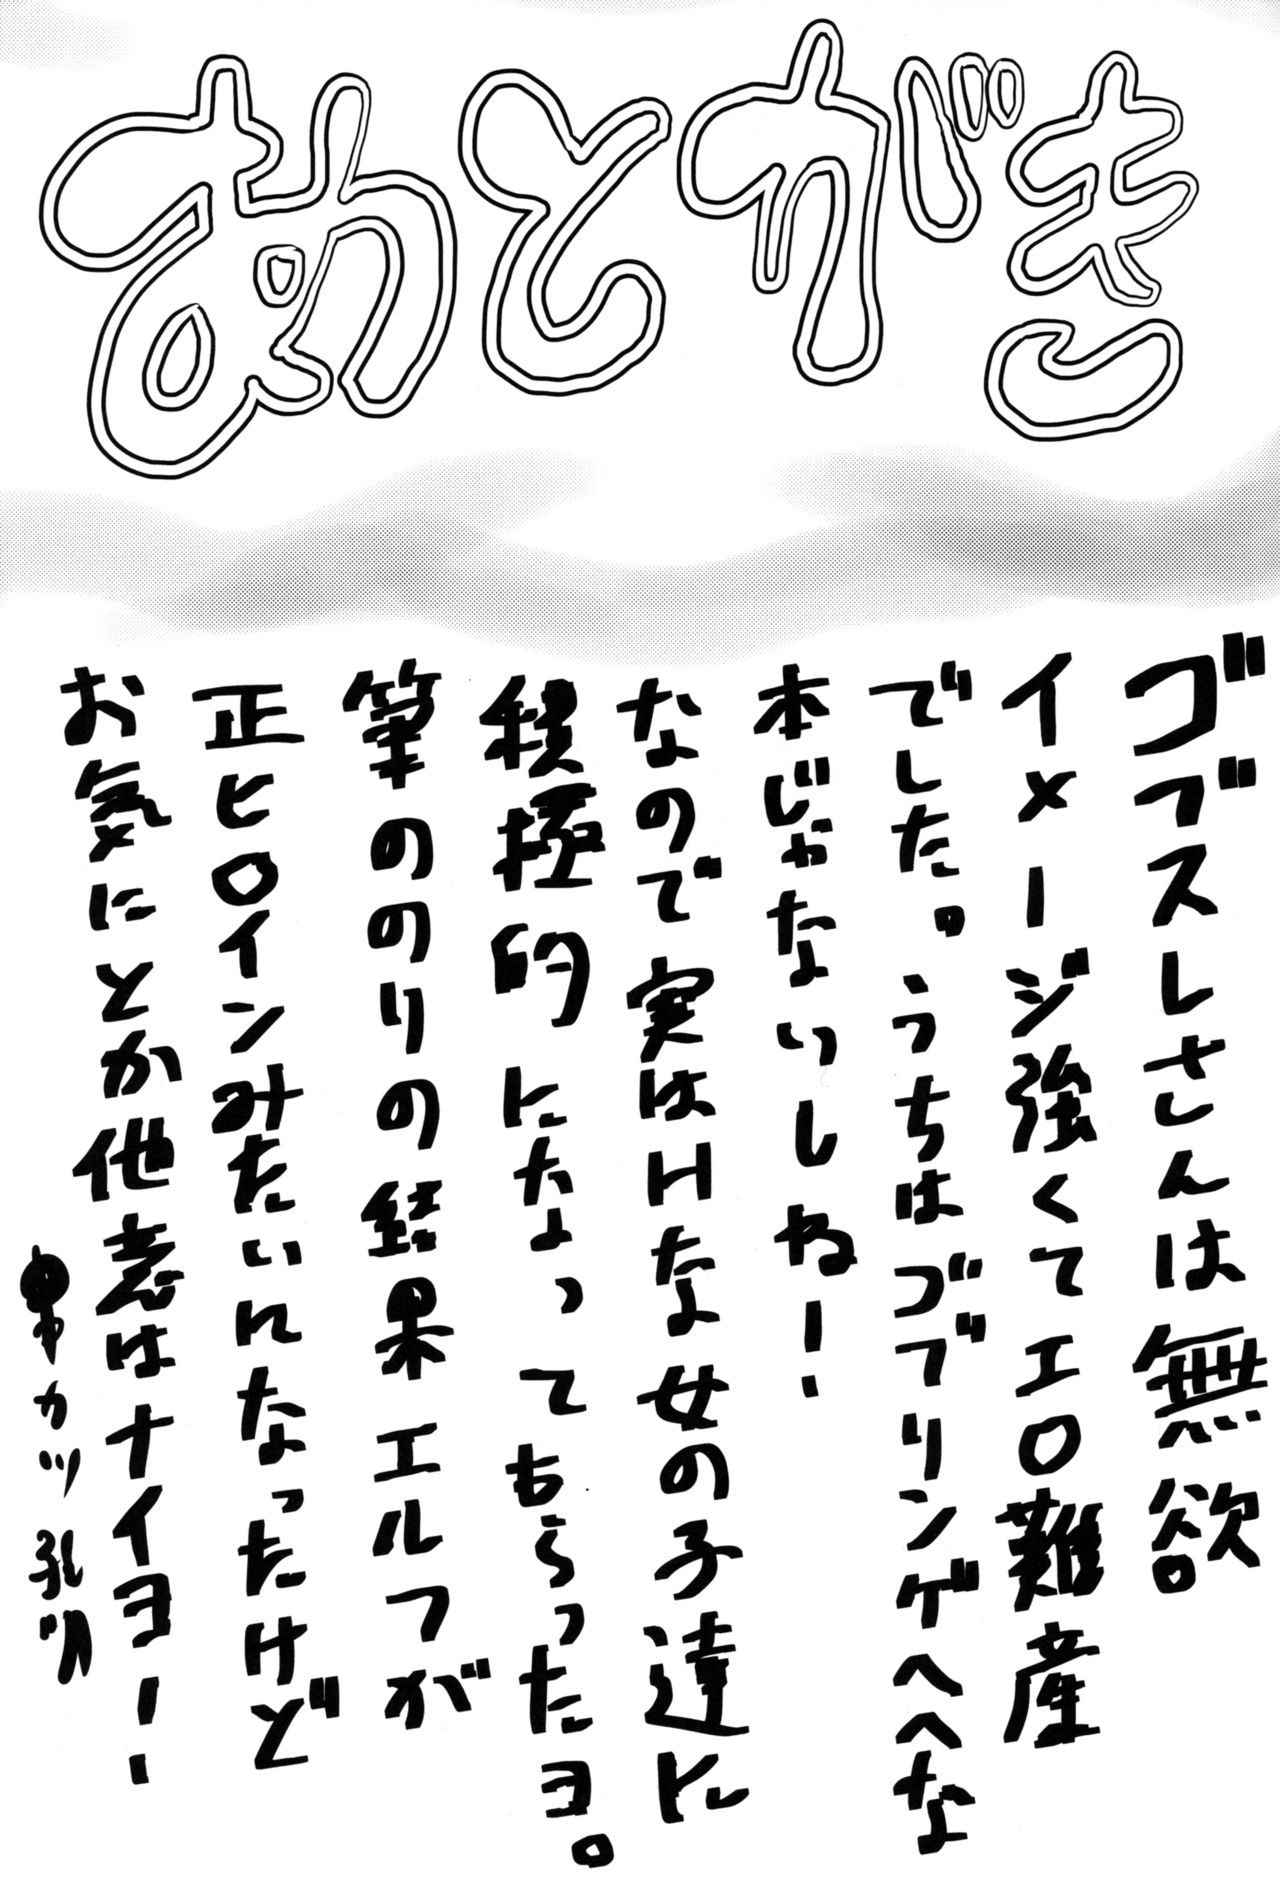 あとがき
ゴブスレさんは無欲
イメージ強くてエロ難産
でした。うちはゴブリンゲへへな
本じゃないしね！
なので実はHな女の子達に
積極的になってもらったヨ。
筆ののりの結果エルフが
正ヒロインみたいになったけど
お気にとか他意はナイヨーー
カツ